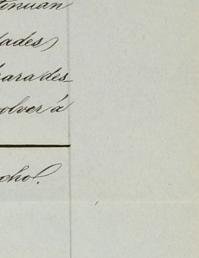 tinuan
dades
para des
olver á
ocho!